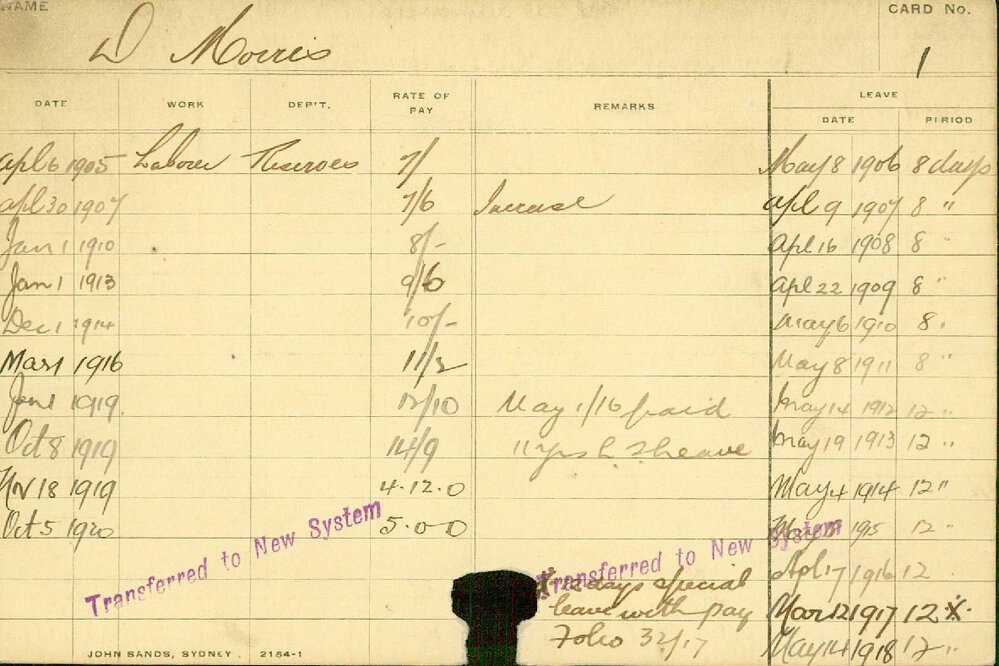 NAME
CARD No.
D Morris
1
DATE WORK DEP'T. RATE OF PAY REMARKS LEAVE
DATE PERIOD
Apl 6 1905 Laborer Reserves 7/ May 8 1906 8 days
Apl 30 1907 7/6 Increase Apl 9 1907 8 "
Jan 1 1910 8/- Apl 16 1908 8 "
Jan 1 1913 9/6 Apl 22 1909 8 "
Dec 1 1914 10/- May 6 1910 8 "
Mar 1 1916 11/2 May 8 1911 8 "
Jan 1 1919 12/10 May 1/16 paid May 14 1912 12 "
Oct 8 1919 14/9 11 yrs leave May 19 1913 12 "
Nv 18 1919 4.12.0 May 4 1914 12 "
Oct 5 1920 5.0.0 May 1915 12 "
Transferred to New System
Transferred to New System
Apl 17 1916 12
X 12 days special Mar 12 1917 12 X
leave with pay
Folio 32/17 May 14 1918 12 "
JOHN SANDS, SYDNEY. 2154-1